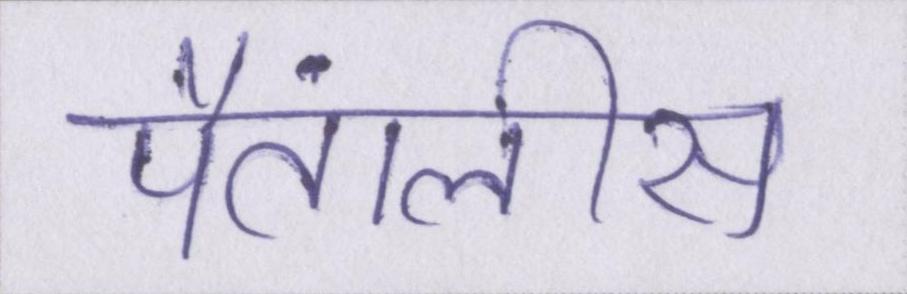 पैतांलीस